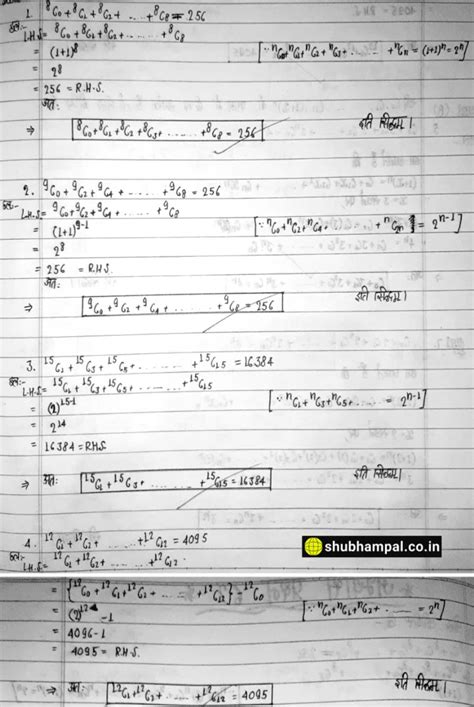 1. ⁸C₀+⁸C₁+⁸C₂+ ..... +⁸C₈ = 256
हल:-
L.H.S.= ⁸C₀+⁸C₁+⁸C₂+ ...... +⁸C₈
= (1+1)⁸ [∵ ⁿC₀+ⁿC₁+ⁿC₂+ⁿC₃+ ..... +ⁿCₙ = (1+1)ⁿ = 2ⁿ]
= 2⁸
= 256 = R.H.S.
अतः
⇒ ⁸C₀+⁸C₁+⁸C₂+⁸C₃+ ....... +⁸C₈ = 256 इति सिद्धम्।
2. ⁹C₀+⁹C₂+⁹C₄+ ...... +⁹C₈ = 256
हल:-
L.H.S.= ⁹C₀+⁹C₂+⁹C₄+ ....... +⁹C₈
= (1+1)⁹⁻¹ [∵ ⁿC₀+ⁿC₂+ⁿC₄+ ....... +ⁿCₙ = 2ⁿ⁻¹]
= 2⁸
= 256 = R.H.S.
अतः
⇒ ⁹C₀+⁹C₂+⁹C₄+ ....... +⁹C₈ = 256 इति सिद्धम्।
3. ¹⁵C₁+¹⁵C₃+¹⁵C₅+ ........ +¹⁵C₁₅ = 16384
हल:-
L.H.S.= ¹⁵C₁+¹⁵C₃+¹⁵C₅+ ....... +¹⁵C₁₅
= (2)¹⁵⁻¹ [∵ ⁿC₁+ⁿC₃+ⁿC₅+ ....... = 2ⁿ⁻¹]
= 2¹⁴
= 16384 = R.H.S
⇒ अतः ¹⁵C₁+¹⁵C₃+ ........ +¹⁵C₁₅ = 16384 इति सिद्धम्।
4. ¹²C₁+¹²C₂+ ....... +¹²C₁₂ = 4095
shubhampal.co.in
हल:-
L.H.S.= ¹²C₁+¹²C₂+ ....... +¹²C₁₂
= {¹²C₀+¹²C₁+¹²C₂+ ....... +¹²C₁₂} - ¹²C₀
= (2)¹² -1 [∵ ⁿC₀+ⁿC₁+ⁿC₂+ ....... = 2ⁿ]
= 4096-1
= 4095 = R.H.S
⇒ अतः ¹²C₁+¹²C₂+ ....... +¹²C₁₂ = 4095 इति सिद्धम्।